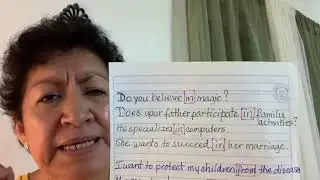 Do you believe [in] magic?
Does your father participate [in] family
activities?
He specializes [in] computers.
She wants to succeed [in] her marriage.
I want to protect my children from the disease